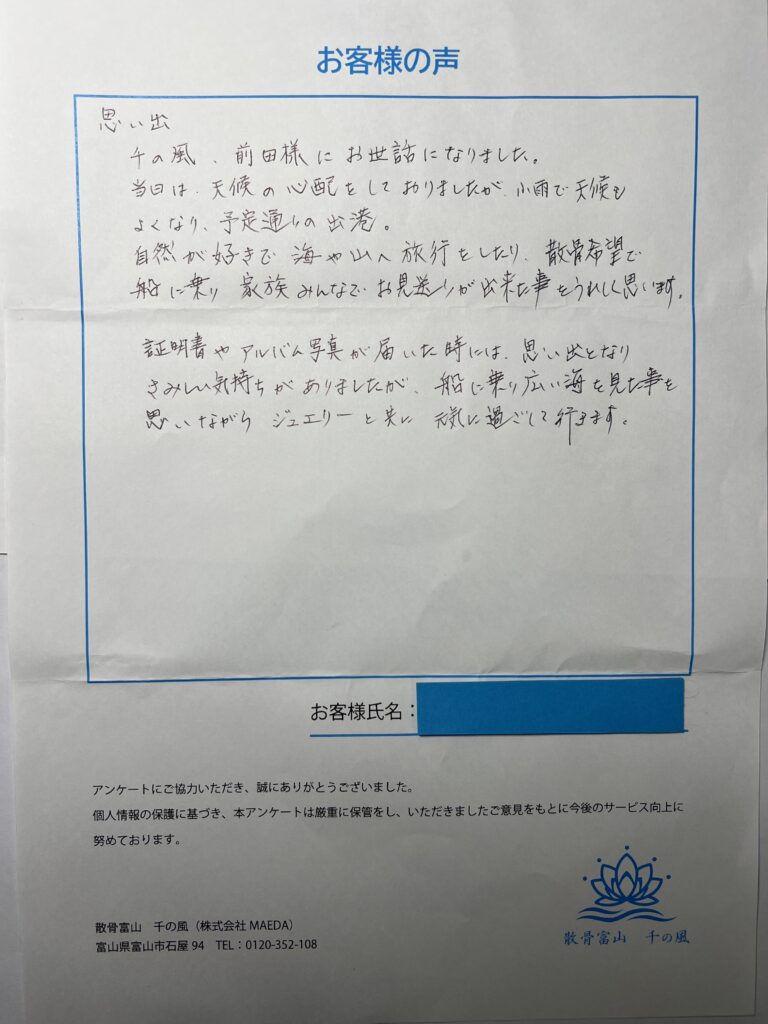 お客様の声
思い出
千の風、前田様にお世話になりました。
当日は、天候の心配をしておりましたが、小雨で天候も
よくなり、予定通りの出港。
自然が好きで海や山へ旅行をしたり、散骨希望で
船に乗り家族みんなでお見送りが出来た事をうれしく思います。
証明書やアルバム写真が届いた時には、思い出となり
さみしい気持ちがありましたが、船に乗り広い海を見た事を
思いながらジュエリーと共に元気に過ごして行きます。
お客様氏名：
アンケートにご協力いただき、誠にありがとうございました。
個人情報の保護に基づき、本アンケートは厳重に保管をし、いただきましたご意見をもとに今後のサービス向上に
努めております。
散骨富山　千の風（株式会社 MAEDA）
富山県富山市石屋 94　TEL：0120-352-108
散骨富山　千の風